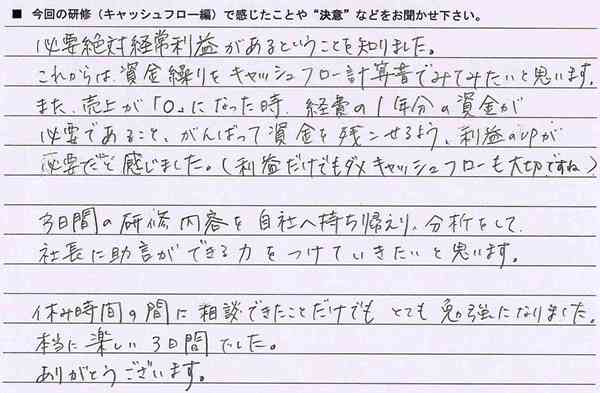 ■ 今回の研修（キャッシュフロー編）で感じたことや“決意”などをお聞かせ下さい。
必要絶対経常利益があるということを知りました。
これからは、資金繰りをキャッシュフロー計算書でみてみたいと思います。
また、売上が「0」になった時、経費の1年分の資金が
必要であること、がんばって資金を残こせるよう、利益のupが
必要だと感じました。（利益だけでもダメキャッシュフローも大切ですね）
3日間の研修内容を自社へ持ち帰えり、分析をして、
社長に助言ができる力をつけていきたいと思います。
休み時間の間に相談できたことだけでもとても勉強になりました。
本当に楽しい3日間でした。
ありがとうございます。